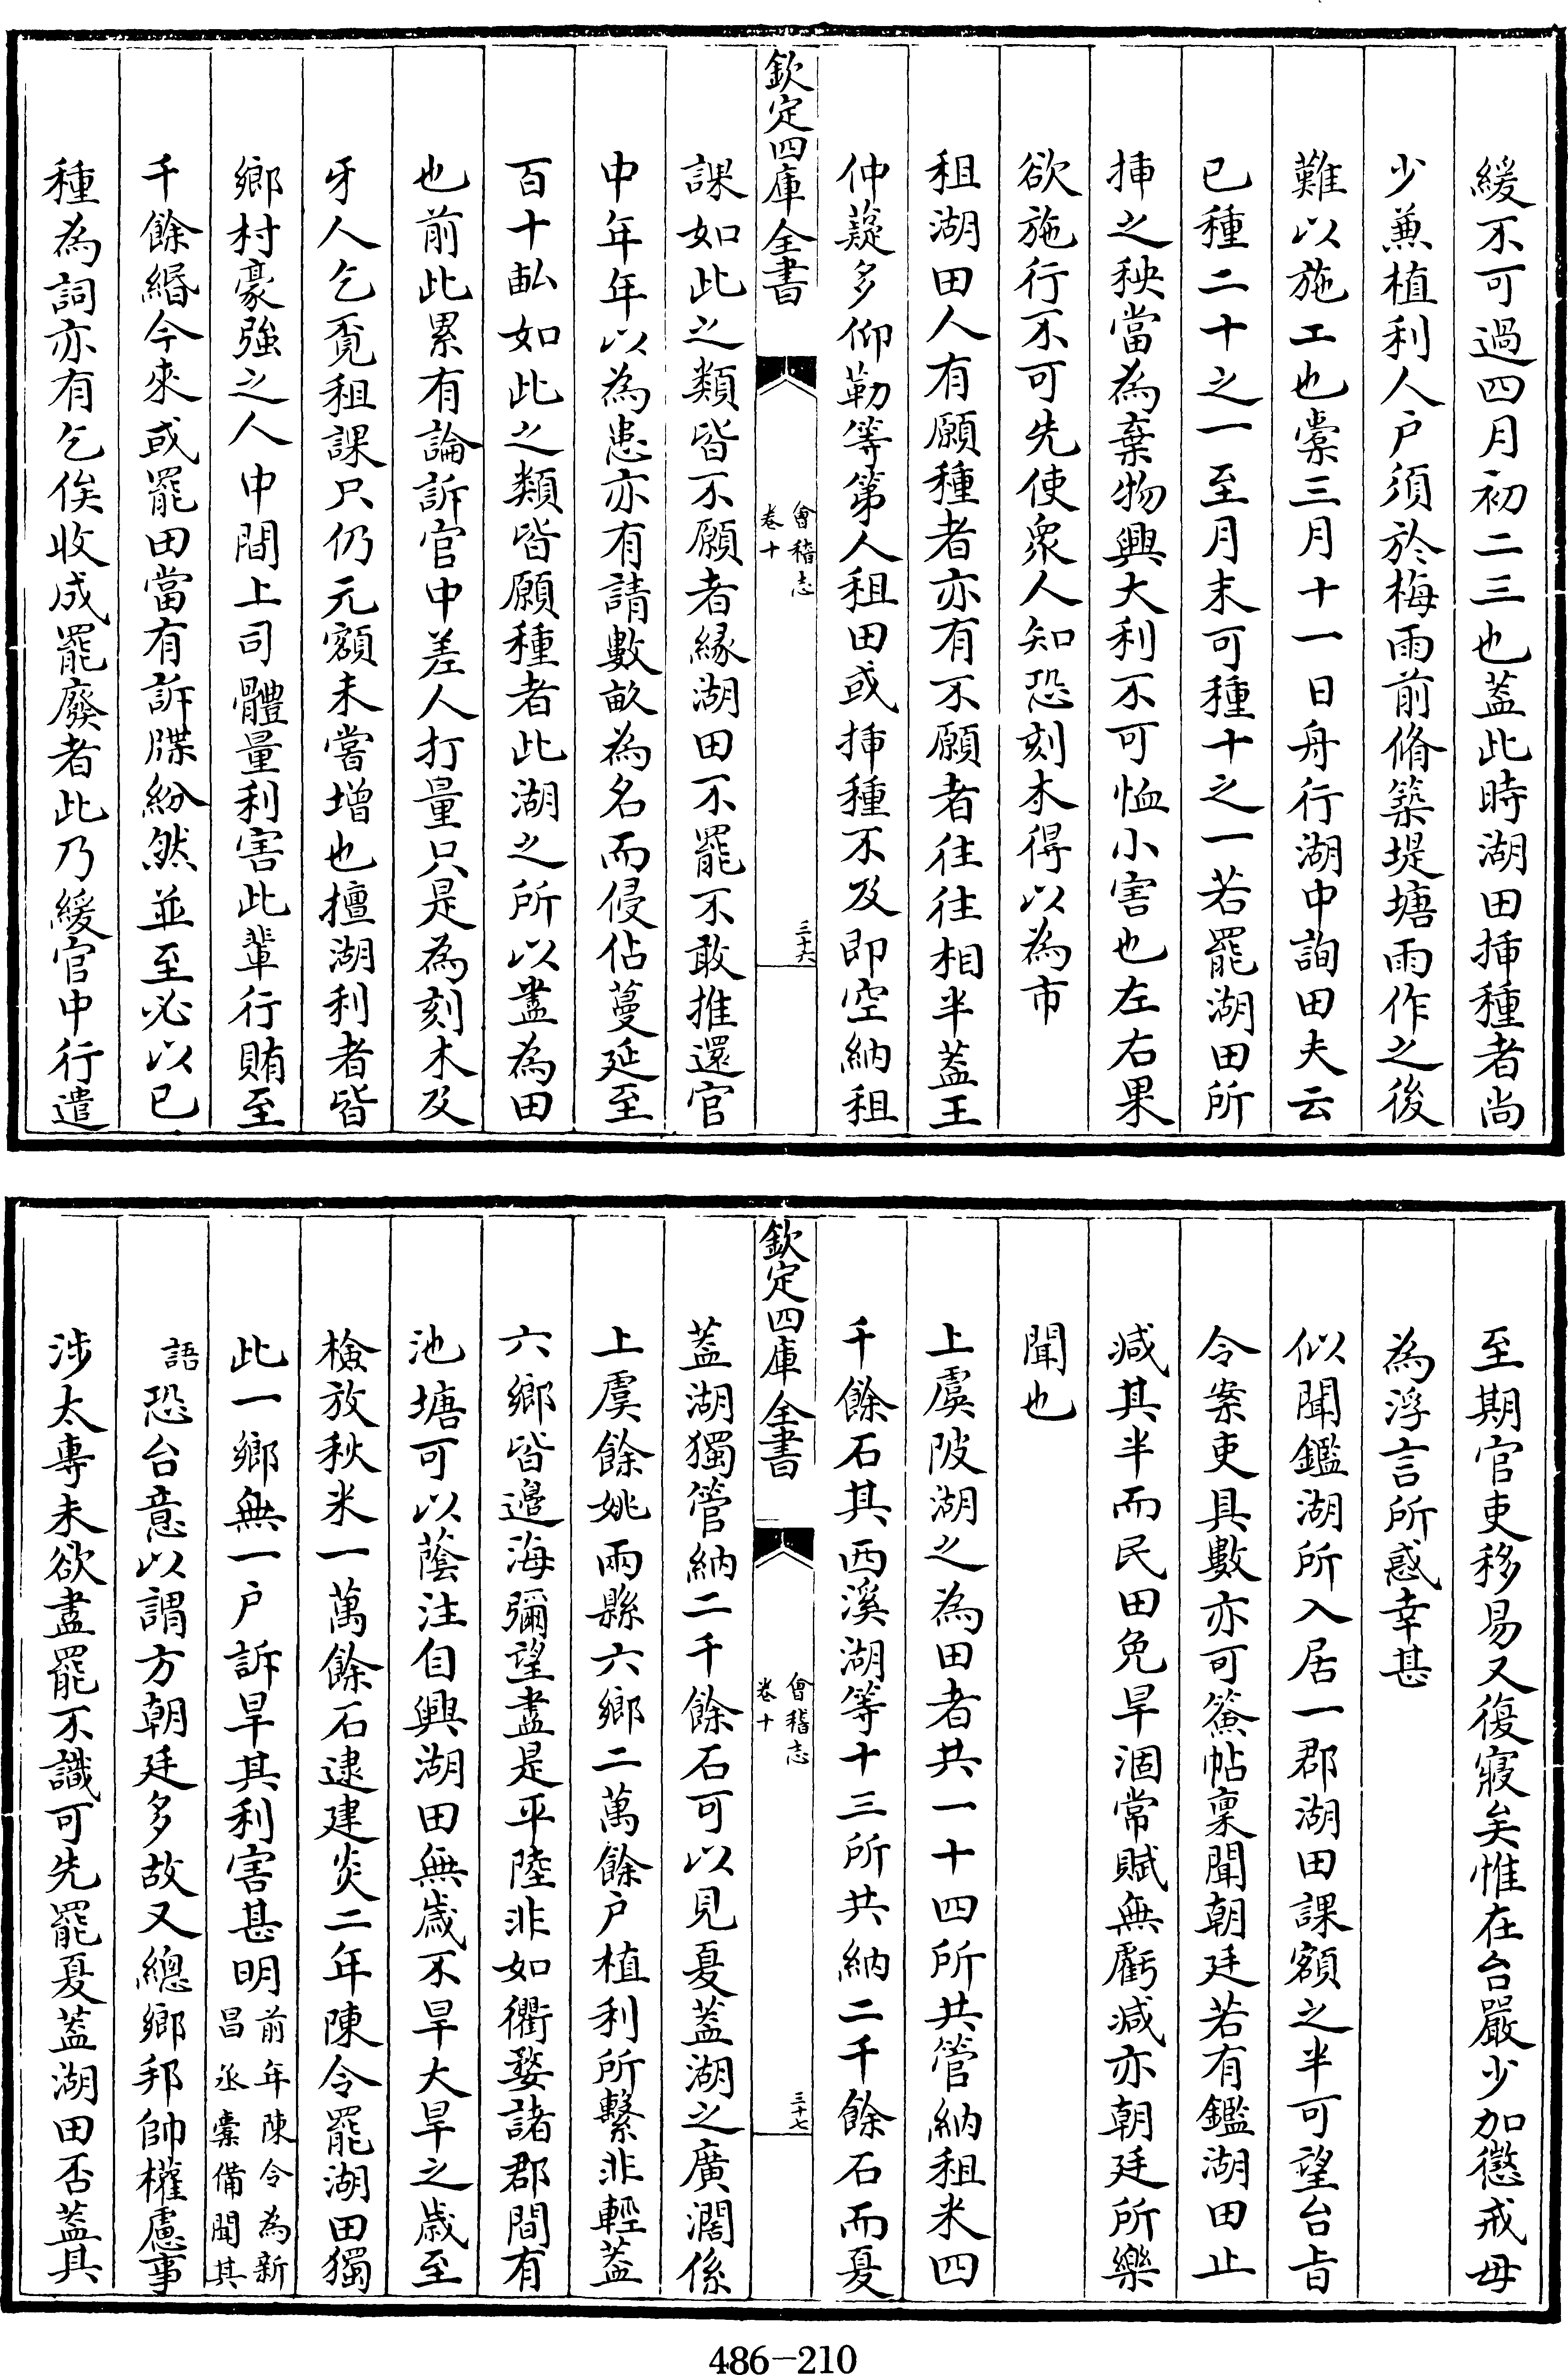 緩不可過四月初二三也蓋此時湖田揷種者尚
少兼植利人戶須於梅雨前脩築堤塘雨作之後
難以施工也橐三月十一日舟行湖中詢田夫云
已種二十之一至月末可種十之一若罷湖田所
揷之秧當為棄物興大利不可恤小害也左右果
欲施行不可先使衆人知恐刻木得以為市
租湖田人有願種者亦有不願者往往相半蓋王
仲薿多仰勒等第人租田或揷種不及即空納租
欽定四庫全書
會稽志
卷十
三十六
課如此之類皆不願者縁湖田不罷不敢推還官
中年年以為患亦有請數畝為名而侵佔蔓延至
百十畝如此之類皆願種者此湖之所以盡為田
也前此累有論訴官中差人打量只是為刻木及
牙人乞覓租課只仍元額未嘗增也擅湖利者皆
鄉村豪強之人中間上司體量利害此輩行賄至
千餘緡今來或罷田當有訴牒紛然並至必以已
種為詞亦有乞俟收成罷廢者此乃緩官中行遣
至期官吏移易又復寢矣惟在台嚴少加懲戒毋
為浮言所惑幸甚
似聞鑑湖所入居一郡湖田課額之半可望台㫖
令案吏具數亦可簽帖稟聞朝廷若有鑑湖田止
減其半而民田免旱涸常賦無虧減亦朝廷所樂
聞也
上虞陂湖之為田者共一十四所共管納租米四
千餘石其西溪湖等十三所共納二千餘石而夏
欽定四庫全書
會稽志
卷十
三十七
蓋湖獨管納二千餘石可以見夏蓋湖之廣濶係
上虞餘姚兩縣六鄉二萬餘戶植利所繫非輕蓋
六鄉皆邊海彌望盡是平陸非如衢婺諸郡間有
池塘可以䕃注自興湖田無歳不旱大旱之歳至
檢放秋米一萬餘石逮建炎二年陳令罷湖田獨
此一鄉無一戶訴旱其利害甚明前年陳令為新
昌丞橐備聞其
語恐台意以謂方朝廷多故又總鄉邦帥權慮事
涉太專未欲盡罷不識可先罷夏蓋湖田否蓋具
486-210